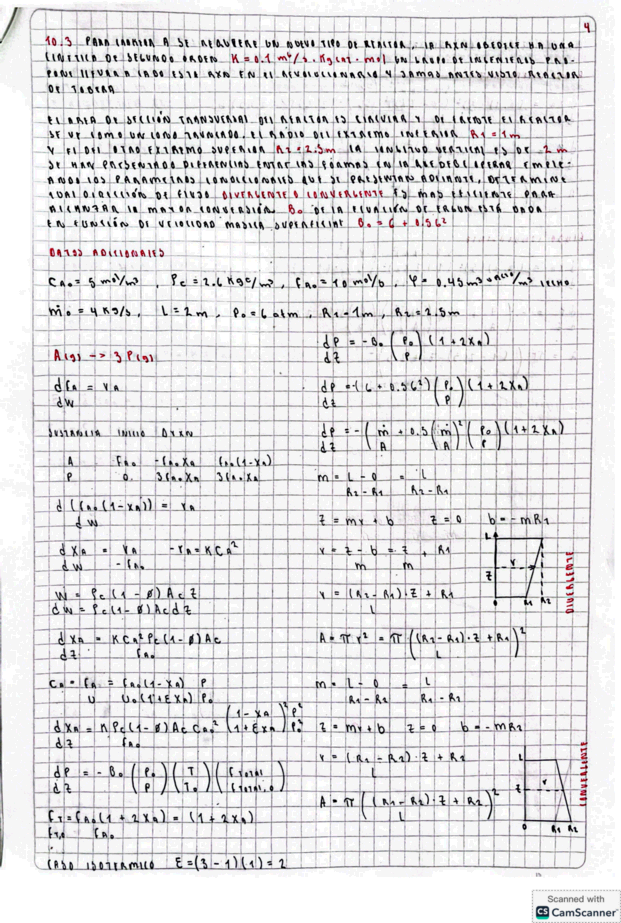 4
10.3 PARA CONVERTIR A SE REQUIERE UN NUEVO TIPO DE REACTOR, LA RXN OBEDECE HA UNA
CINETICA DE SEGUNDO ORDEN K = 0.1 m⁶/s·Kgcat·mol UN GRUPO DE INGENIEROS PRO-
PONE LLEVAR A CABO ESTA RXN EN EL REVOLUCIONARIO Y JAMAS ANTES VISTO REACTOR
DE TOBERA
EL AREA DE SECCIÓN TRANSVERSAL DEL REACTOR ES CIRCULAR Y DE FRENTE EL REACTOR
SE VE COMO UN CONO TRUNCADO. EL RADIO DEL EXTREMO INFERIOR R1 = 1m
Y EL DEL OTRO EXTREMO SUPERIOR R2 = 2.5m LA LONGITUD VERTICAL ES DE 2 m
SE HAN PRESENTADO DIFERENCIAS ENTRE LAS FORMAS EN LA QUE DEBE OPERAR EMPLE-
ANDO LOS PARAMETROS CONDICIONALES QUE SE PRESENTAN ADELANTE, DETERMINE
CUAL DIRECCIÓN DE FLUJO DIVERGENTE O CONVERGENTE ES MAS EFICIENTE PARA
ALCANZAR LA MAYOR CONVERSIÓN B₀ DE LA ECUACIÓN DE ERGUN ESTA DADA
EN FUNCIÓN DE VELOCIDAD MASICA SUPERFICIAL B₀ = G + 0.5G²
DATOS ADICIONALES
CA₀ = 5 mol/m³, ρc = 2.6 Kgc/m³, FA₀ = 10 mol/s, φ = 0.45 m³ /m³ LECHO
ṁ₀ = 4 Kg/s, L = 2m, P₀ = 6 atm, R1 = 1m, R2 = 2.5m
A(g) -> 3 P(g)
dFA = rA
dW
SUSTANCIA INICIO DRXN
A FA₀ -FA₀XA FA₀(1-XA)
P 0 3FA₀XA 3FA₀XA
d (FA₀(1-XA)) = rA
dW
dXA = rA -rA = KCA²
dW -FA₀
W = ρc(1-ø)Ac z
dW = ρc(1-ø)Ac dz
dXA = KCA²ρc(1-ø)Ac
dz FA₀
CA = FA = FA₀(1-XA) P
υ υ₀(1+εXA) P₀
dXA = Kρc(1-ø)Ac CA₀² (1-XA / 1+εXA)² P²/P₀²
dz FA₀
dP = -B₀ (P₀/P) (T/T₀) (FTOTAL/FTOTAL,0)
dz
FT = FA₀(1+2XA) = (1+2XA)
FT,0 FA₀
CASO ISOTERMICO ε = (3-1)(1) = 2
dP = -B₀ (P₀/P) (1+2XA)
dz
dP = -(G + 0.5G²) (P₀/P) (1+2XA)
dz
dP = -(ṁ/A + 0.5(ṁ/A)²) (P₀/P) (1+2XA)
dz
m = L-0 = L
R2-R1 R2-R1
z = mr + b z = 0 b = -mR1
r = z - b = z + R1
m m
r = (R2-R1)·z + R1
L
A = πr² = π((R2-R1)·z + R1)²
L
L
r
z
0 R1 R2
DIVERGENTE
m = L-0 = L
R1-R2 R1-R2
z = mr + b z = 0 b = -mR2
r = (R1-R2)·z + R2
L
A = π((R1-R2)·z + R2)²
L
L
r
z
0 R1 R2
CONVERGENTE
Scanned with
CS CamScanner